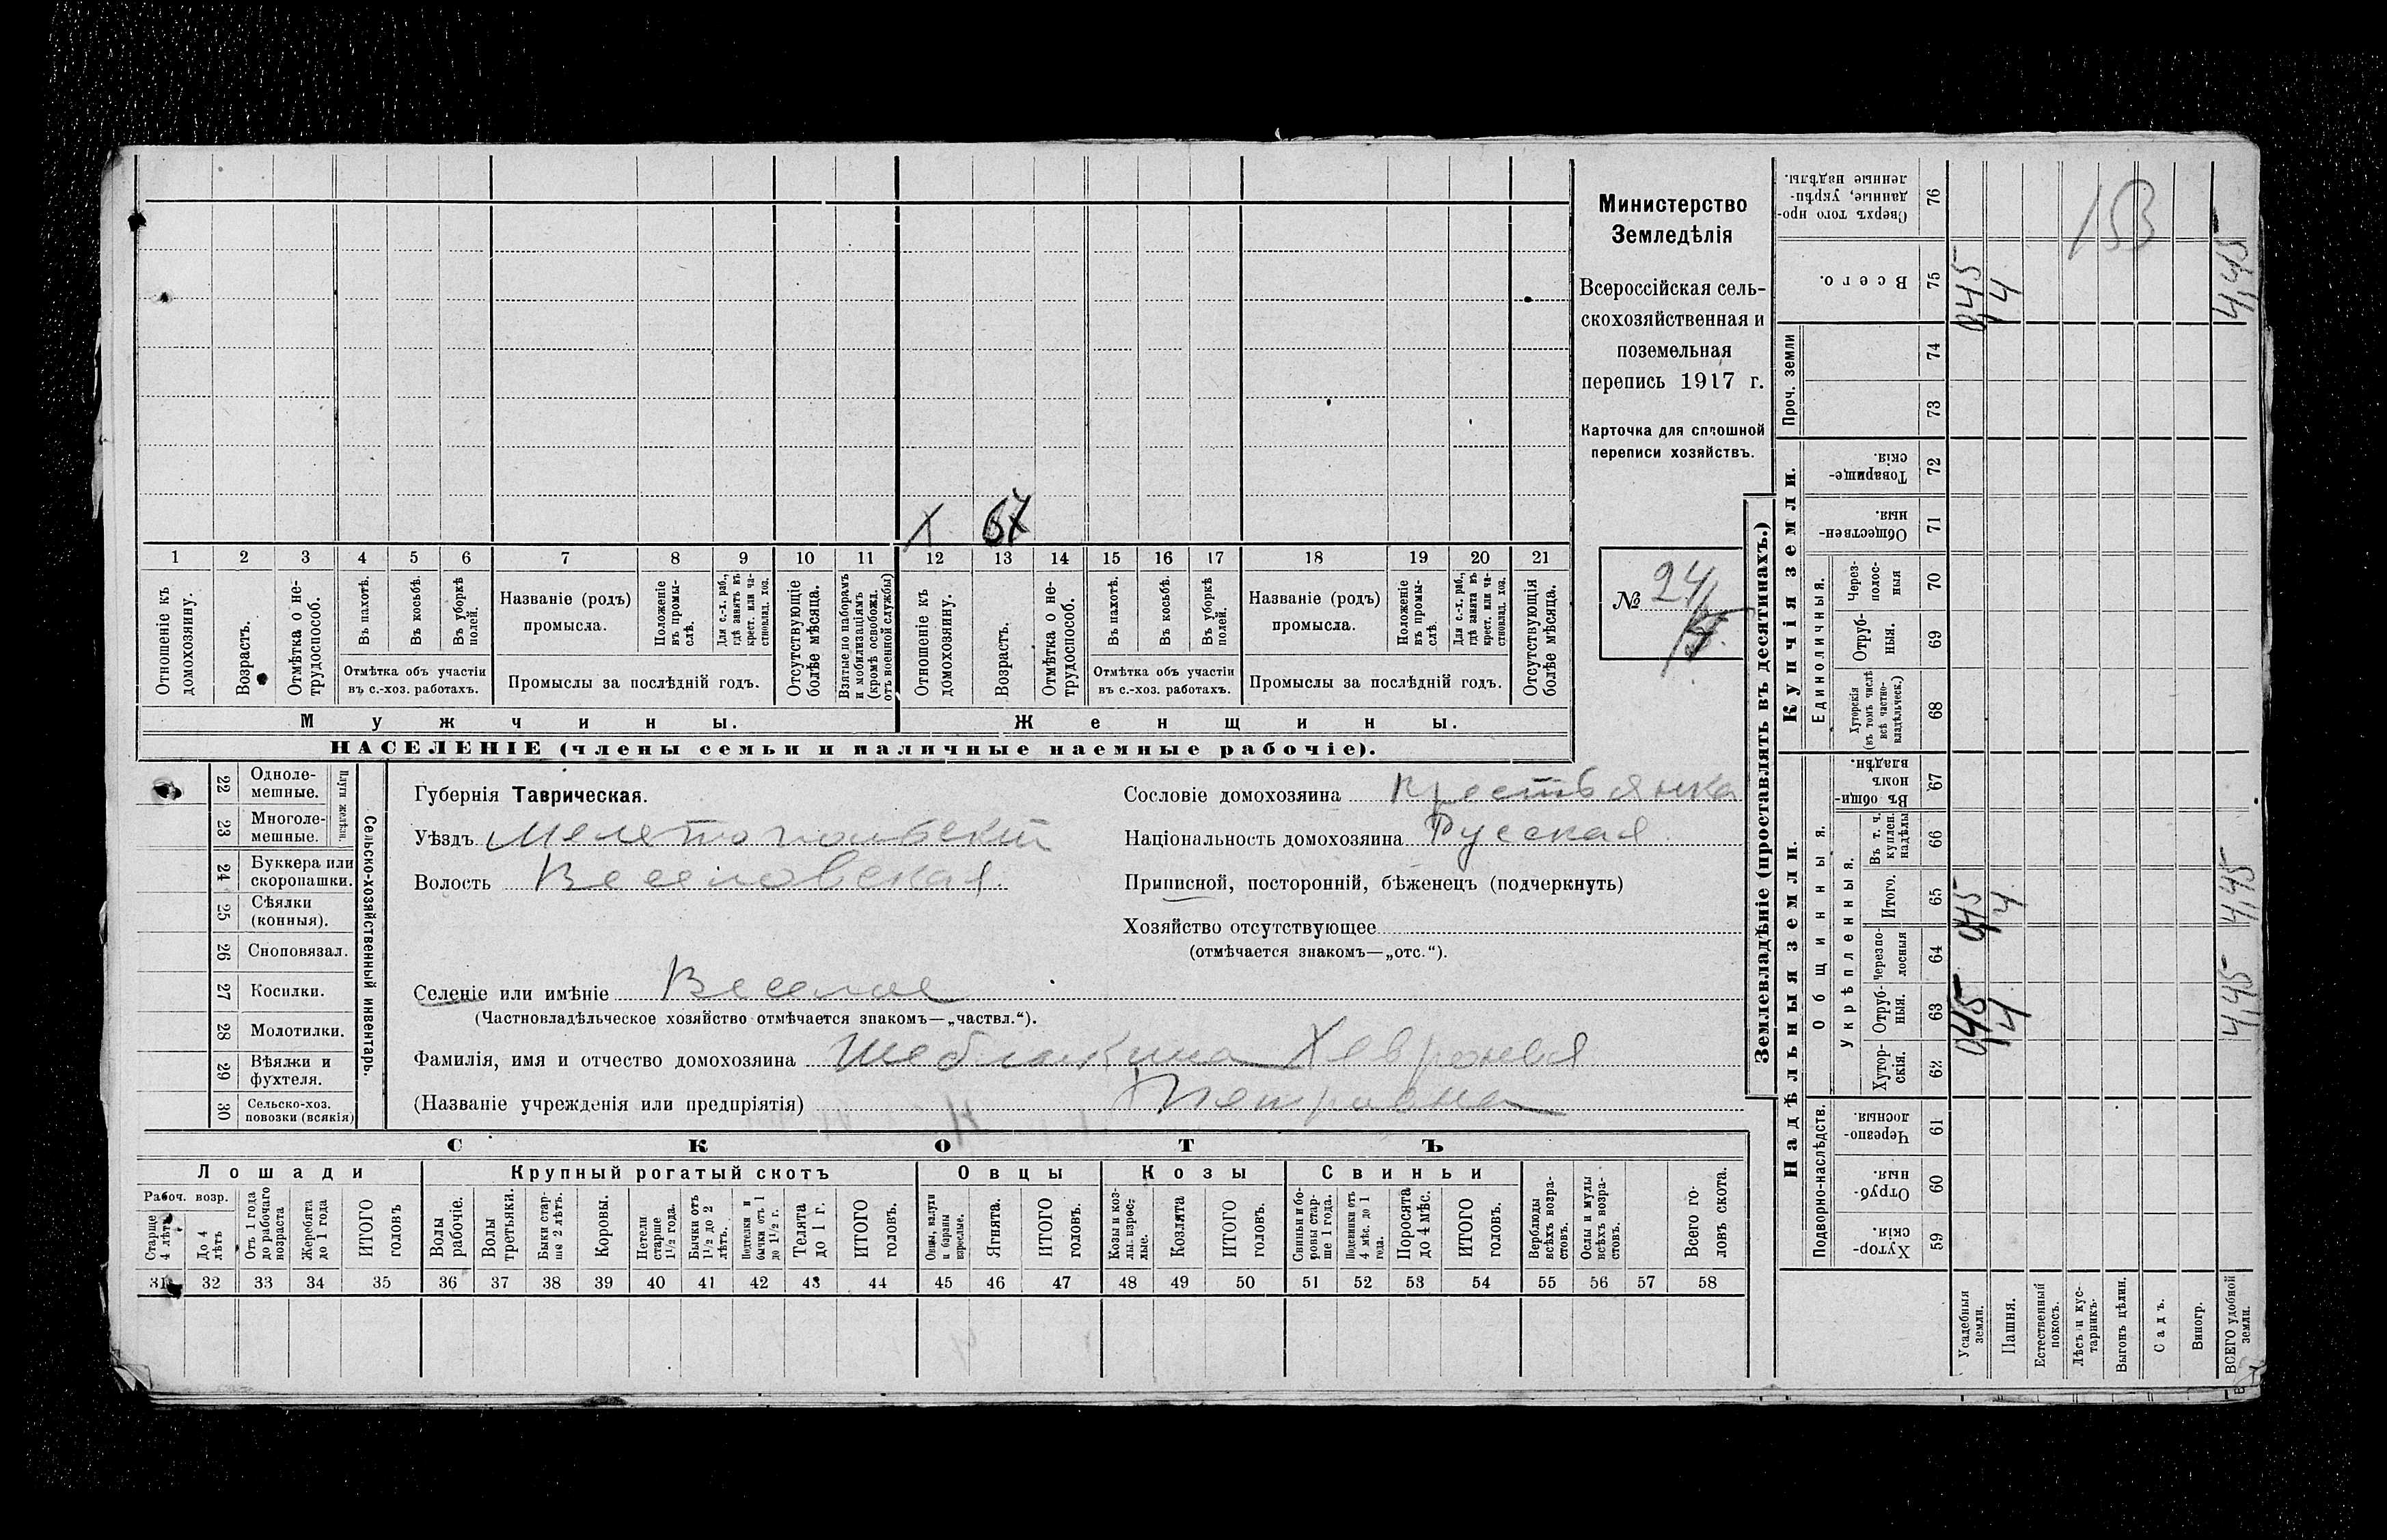 1 2 3 4 5 6 7 8 9 10 11 12 13 14 15 16 17 18 19 20 21
Х 67
Отношеніе къ домохозяину.
Возрастъ.
Отмѣтка о не-
трудоспособ.
Въ пахотѣ.
Въ косьбѣ.
Въ уборкѣ
полей.
Отмѣтка объ участіи
въ с.-хоз. работахъ.
Названіе (родъ)
промысла.
Положеніе
въ промы-
слѣ.
Для с.-х. раб.,
гдѣ занятъ въ
крест. или ча-
стновлад. хоз.
Промыслы за послѣдній годъ.
Отсутствующіе
болѣе мѣсяца.
Взятые по наборамъ
и мобилизаціямъ
(кромѣ освобожд.
отъ военной службы)
Отношеніе къ
домохозяину.
Возрастъ.
Отмѣтка о не-
трудоспособ.
Въ пахотѣ.
Въ косьбѣ.
Въ уборкѣ
полей.
Отмѣтка объ участіи
въ с.-хоз. работахъ.
Названіе (родъ)
промысла.
Положеніе
въ промы-
слѣ.
Для с.-х. раб.,
гдѣ занята въ
крест. или ча-
стновлад. хоз.
Промыслы за послѣдній годъ.
Отсутствующія
болѣе мѣсяца.
Мужчины.
Женщины.
НАСЕЛЕНІЕ (члены семьи и наличные наемные рабочіе).
Министерство
Земледѣлія
Всероссійская сель-
скохозяйственная и
поземельная
перепись 1917 г.
Карточка для сплошной
переписи хозяйствъ.
№ 24
22 Одноле-
мешные.
23 Многоле-
мешные.
Плуги желѣзн.
24 Буккера или
скоропашки.
25 Сѣялки
(конныя).
26 Сноповязал.
27 Косилки.
28 Молотилки.
29 Вѣялки и
фухтеля.
30 Сельско-хоз.
повозки (всякія)
Сельско-хозяйственный инвентарь.
Губернія Таврическая.
Уѣздъ Мелетопольскій
Волость Веселовская.
Селеніе или имѣніе Веселое
(Частновладѣльческое хозяйство отмѣчается знакомъ—„частвл.“).
Фамилія, имя и отчество домохозяина Шеблыкина Хевронья
(Названіе учрежденія или предпріятія) Петровна
Сословіе домохозяина крестьянка
Національность домохозяина Русская.
Приписной, посторонній, бѣженецъ (подчеркнуть)
Хозяйство отсутствующее
(отмѣчается знакомъ—„отс.“).
СКОТЪ
Лошади
Крупный рогатый скотъ
Овцы
Козы
Свиньи
Рабоч. возр.
Старше
4 лѣтъ
До 4
лѣтъ
Отъ 1 года
до рабочаго
возраста
Жеребята
до 1 года
ИТОГО
головъ
Волы
рабочіе.
Волы
третьяки.
Быки стар-
ше 2 лѣтъ.
Коровы.
Нетели
старше
1½ года.
Бычки отъ
1½ до 2
лѣтъ.
Подтелки и
бычки отъ 1
до 1½ г.
Телята
до 1 г.
ИТОГО
головъ.
Овцы, валухи
и бараны
взрослые.
Ягнята.
ИТОГО
головъ.
Козы и коз-
лы взрос-
лые.
Козлята
ИТОГО
головъ.
Свиньи и бо-
ровы стар-
ше 1 года.
Подсвинки отъ
4 мѣс. до 1
года.
Поросята
до 4 мѣс.
ИТОГО
головъ.
Верблюды
всѣхъ возра-
стовъ.
Ослы и мулы
всѣхъ возра-
стовъ.
Всего го-
ловъ скота.
31 32 33 34 35 36 37 38 39 40 41 42 43 44 45 46 47 48 49 50 51 52 53 54 55 56 57 58
Землевладѣніе (проставлять въ десятинахъ.)
Купчія земли.
Надѣльныя земли.
Сверхъ того про-
данные, укрѣп-
ленные надѣлы.
76
153
Всего.
75
0,45
4
4,45
Проч. земли
74
73
Товарище-
скія.
72
Обществен-
ныя.
71
Единоличныя.
Через-
полос-
ныя
70
Отруб-
ныя.
69
Хуторскія
(въ томъ числѣ
всѣ частно-
владѣльческ.)
68
Общинныя.
Въ общи-
номъ
владѣн.
67
Укрѣпленныя.
Въ т. ч.
куплен.
надѣлы
66
Итого.
65
0,45
4
4,45
Черезпо-
лосныя
64
Отруб-
ныя.
63
0,45
4
4,45
Хутор-
скія.
62
Подворно-наслѣдств.
Черезпо-
лосныя.
61
Отруб-
ныя.
60
Хутор-
скія.
59
Усадебныя
земли.
Пашня.
Естественный
покосъ.
Лѣсъ и кус-
тарникъ.
Выгонъ цѣлин.
Садъ.
Виногр.
ВСЕГО удобной
земли.